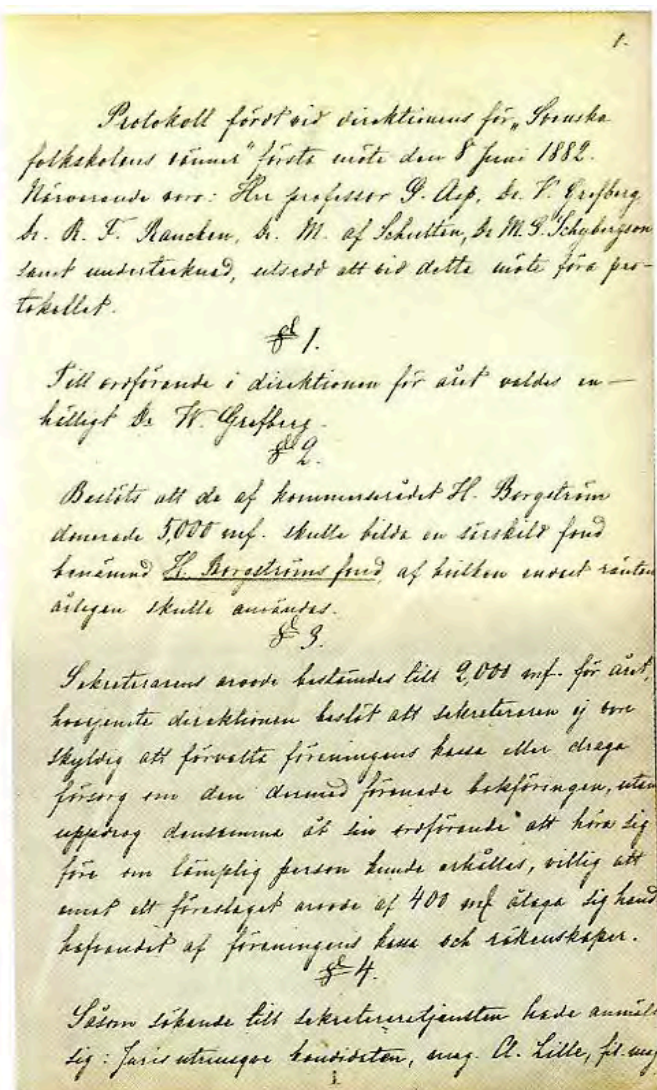 1.
Protokoll fördt vid direktionens för „Svenska
folkskolans vänner" första möte den 8 Juni 1882.
Närvarande voro: Hrr professor G. Asp, Dr. V. Grefberg
Dr. R. F. Rancken, Dr. M. af Schultén, Dr M. G. Schybergson
samt undertecknad, utsedd att vid detta möte föra pro-
tokollet.
§ 1.
Till ordförande i direktionen för året valdes en-
hälligt Dr W. Grefberg.
§ 2.
Beslöts att de af kommerserådet H. Borgström
donerade 5,000 mf. skulle bilda en särskild fond
benämnd H. Borgströms fond, af hvilken endast räntan
årligen skulle användas.
§ 3.
Sekreterarens arvode bestämdes till 2,000 mf. för året,
hvarjemte direktionen beslöt att sekreteraren ej vore
skyldig att förvalta föreningens kassa eller draga
försorg om den dermed förenade bokföringen, utan
uppdrog densamma åt sin ordförande att höra sig
före om lämplig person kunde erhållas, villig att
emot ett föreslaget arvode af 400 mf. åtaga sig hand
hafvandet af föreningens kassa och räkenskaper.
§ 4.
Såsom sökande till sekreteraretjensten hade anmäl
sig: Juris utriusque kandidaten, mag. A. Lille, fil. mag